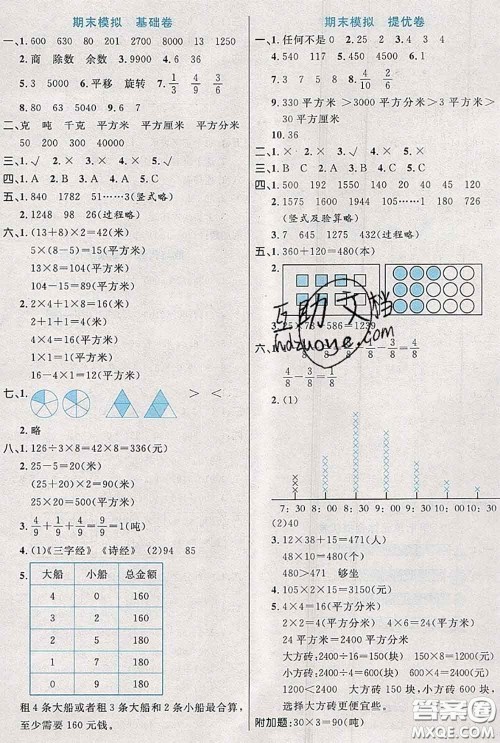 期末模拟 基础卷
一、1. 600 630 80 201 2000 13 1250
2. 商 除数 余数 3. 9900 4. 12 6
5. 3 5000 6. 平移 旋转 7. 1/3 4/9 3/6
8. 80 63 32 9. 6 7
二、克 吨 千克 平方米 平方厘米 平方米
50 200 300 40000
三、1. √ 2. × 3. × 4. × 5. √
四、1. A 2. B 3. C 4. A 5. B
五、1. 840 1782 51……3(竖式略)
2. 1248 98 26(过程略)
六、1. (13+8)×2=42(米)
5×(8-5)=15(平方米)
13×8=104(平方米)
2. 2+1+1=4(平方米)
1+1+1=3(平方米)
4×4=16(平方米)
16-4×1=12(平方米)
七、1. > <
2. 略
八、1. 126÷3×8=42×8=336(元)
2. 25-5=20(米)
(25+20)×2=90(米)
25×20=500(平方米)
3. 4/9+1/9+4/9=9/9=1(吨)
4. (1)《三字经》《诗经》 (2)94 85
5.
大船 小船 总金额
4 0 160
3 2 160
2 5 180
1 7 180
0 9 180
租4条大船或者租3条大船和2条小船最合算,
至少需要160元钱。
期末模拟 提优卷
一、1. 任何不是0 2. 25 3. 4 3 4
4. 540 117 5. 650 6. > < > <
7. 3 5 8. 4/10 2/6
9. 330平方米>3000平方分米>3平方米>
30平方厘米
10. 36
二、1. × 2. × 3. × 4. √ 5. ×
三、1. B C 2. C 3. A 4. B
四、1. 500 1192 1550 140 40 45 20
2. 1666 1975 1944 108……1 190 107
(竖式及验算略)
3. 7 645 1275 432(过程略)
五、1. 360+120=480(本)
2.
3. 25×78-586=1239
2. (1)
7:30 8:00 8:30 9:00 9:30 10:00 10:30 11:00
(2)40
3. 12×38+15=471(人)
48×10=480(人)
480>471 够坐
4. 2×15×105=3150(元)
5. 4×4=16(平方分米) 4×6=24(平方米)
24平方米=2400平方分米
大方砖:2400÷16=150(块) 150×8=1200(元)
小方砖:2400÷4=600(块) 600×3=1800(元)
选择大方砖便宜些。
附加题:30×3=90(吨)
互助文档
hdzuoye.com
答案圈
MXQE.COM